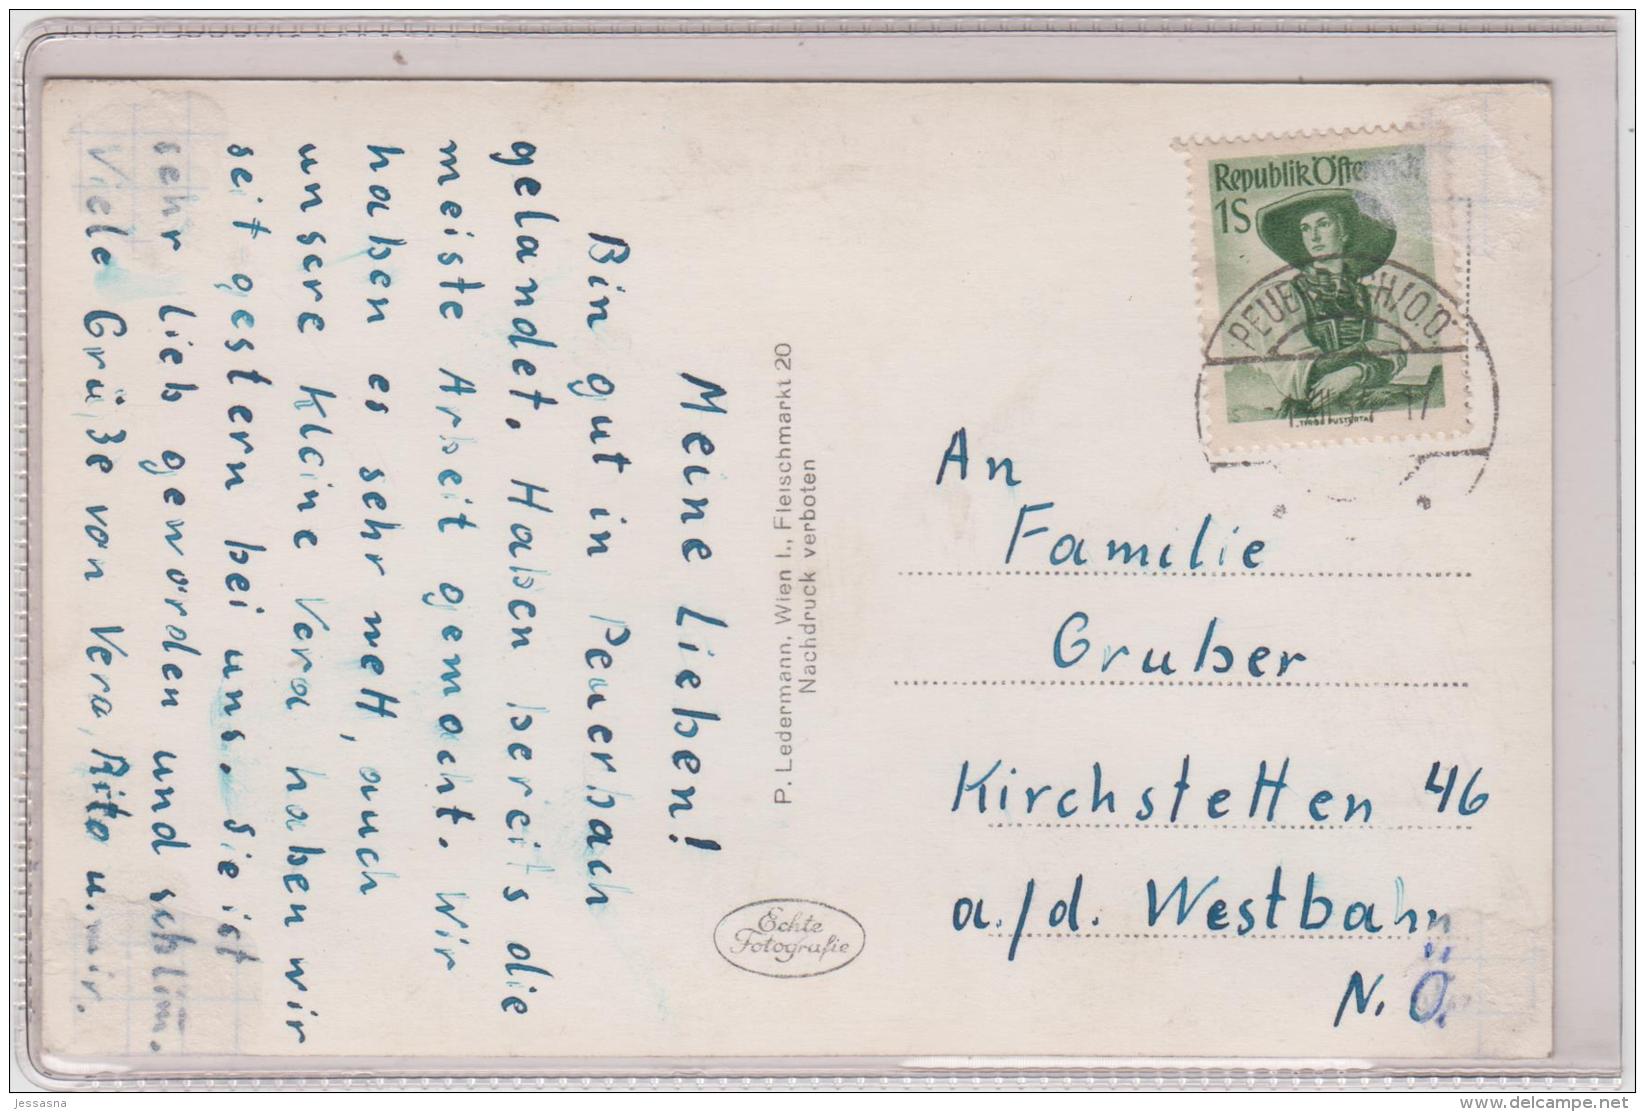 Meine Lieben!
Bin gut in Peuerbach
gelandet. Haben bereits die
meiste Arbeit gemacht. Wir
haben es sehr nett, auch
unsere kleine Vera haben wir
seit gestern bei uns. Sie ist
sehr lieb geworden und schlim.
Viele Grüße von Vera, Rita u. mir.
P. Ledermann, Wien I., Fleischmarkt 20
Nachdruck verboten
Echte
Fotografie
Republik Österreich
1S
"TIROL PUSTERTAL"
PEUERBACH/O.Ö.
An
Familie
Gruber
Kirchstetten 46
a./d. Westbahn
N.Ö.
jessasna
www.delcampe.net